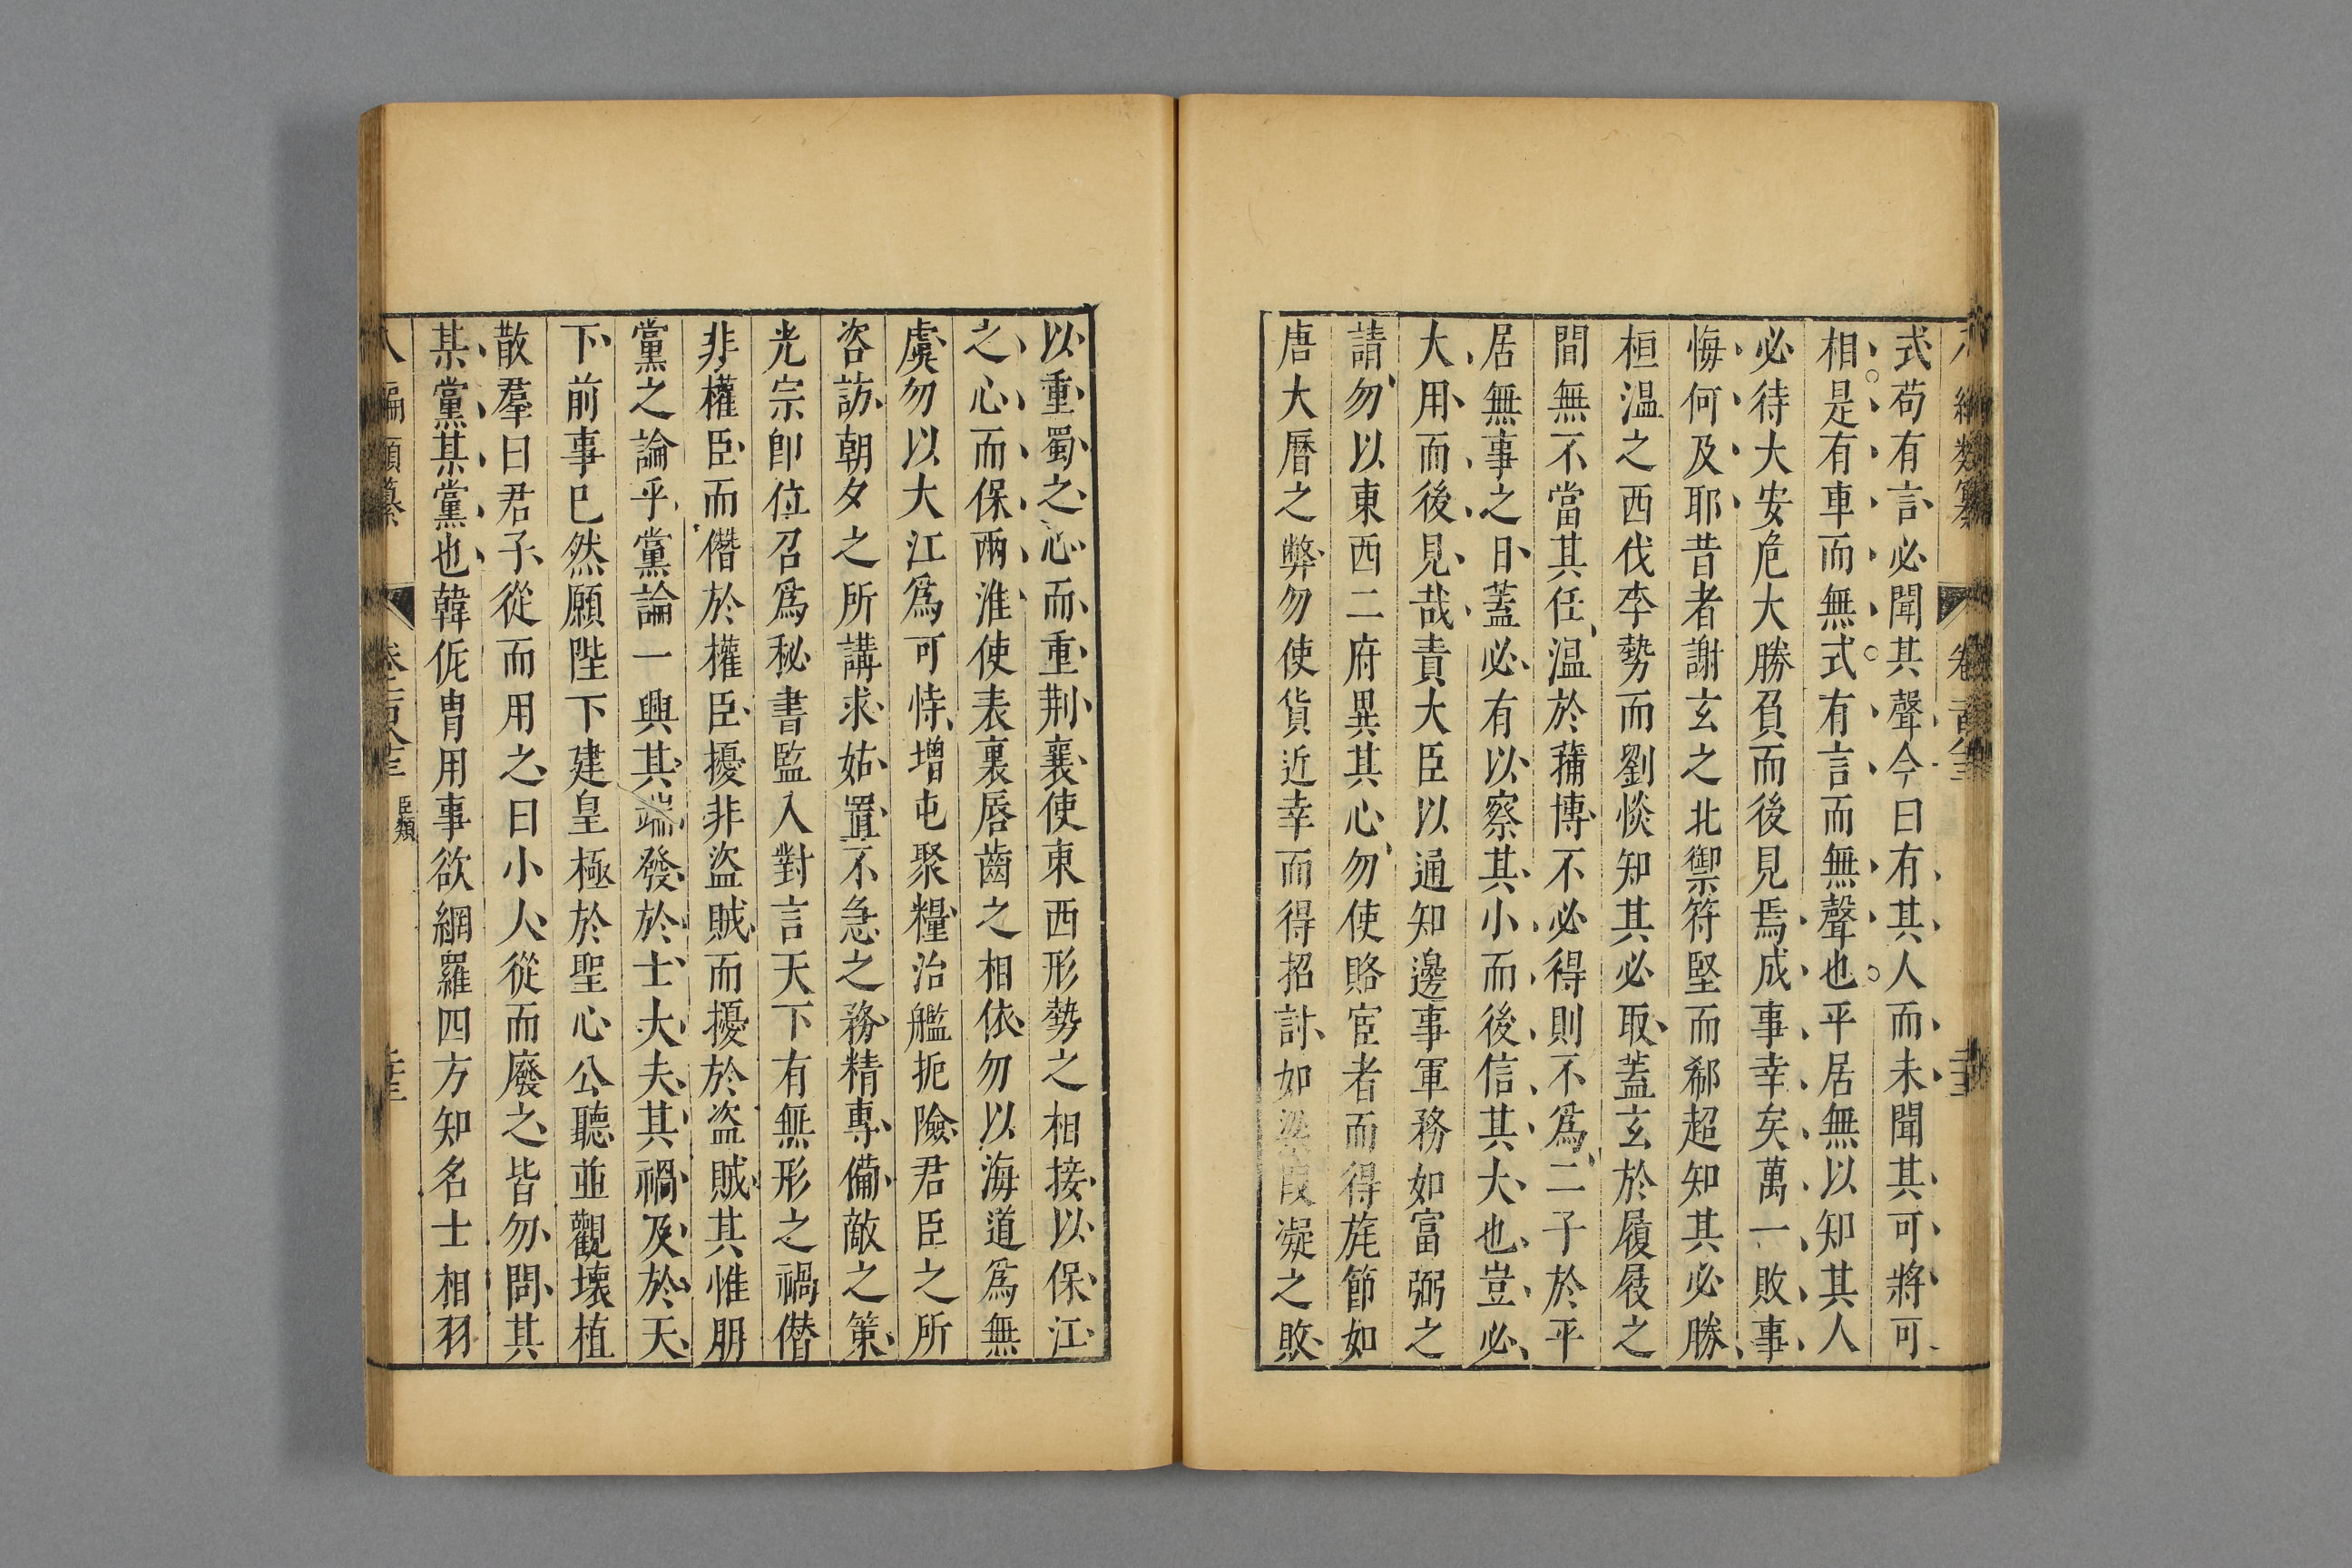 式苟有言必聞其聲今曰有其人而未聞其可將可
相是有車而無式有言而無聲也平居無以知其人
必待大安危大勝負而後見焉成事幸矣萬一敗事
悔何及耶昔者謝玄之北禦符堅而郗超知其必勝
桓温之西伐李勢而劉惔知其必取蓋玄於履屐之
間無不當其任温於蒱博不必得則不為二子於平
居無事之日蓋必有以察其小而後信其大也豈必
大用而後見哉責大臣以通知邊事軍務如富弼之
請勿以東西二府異其心勿使賂宦者而得旄節如
唐大曆之弊勿使貨近幸而得招討如梁段凝之敗
以重蜀之心而重荆襄使東西形勢之相接以保江
之心而保兩淮使表裏唇齒之相依勿以海道為無
虞勿以大江為可恃增屯聚糧治艦扼險君臣之所
咨訪朝夕之所講求姑置不急之務精專備敵之策
光宗卽位召為秘書監入對言天下有無形之禍僭
非權臣而僭於權臣擾非盜賊而擾於盜賊其惟朋
黨之論乎黨論一興其端發於士大夫其禍及於天
下前事已然願陛下建皇極於聖心公聽並觀壞植
散羣曰君子從而用之曰小人從而廢之皆勿問其
某黨某黨也韓侂胄用事欲網羅四方知名士相羽
八編類纂 臣類